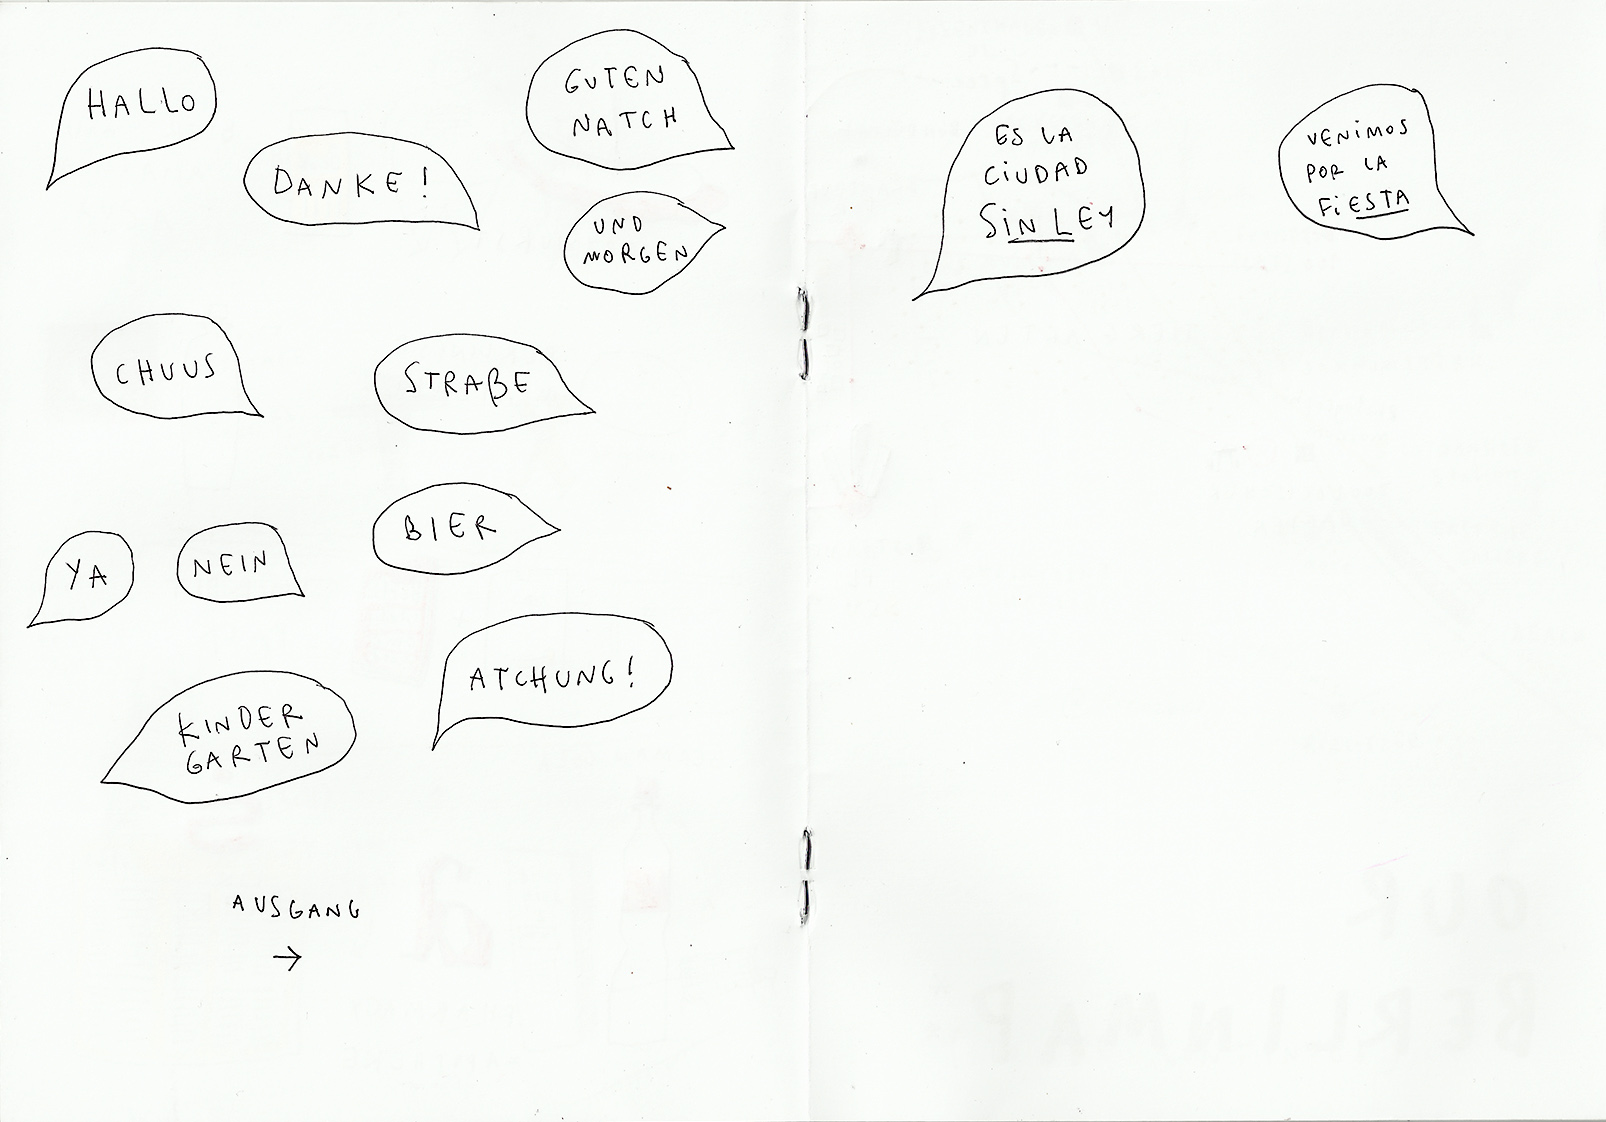 HALLO
DANKE!
GUTEN
NATCH
UND
MORGEN
CHUUS
STRAßE
BIER
YA
NEIN
ATCHUNG!
KINDER
GARTEN
AUSGANG
→
ES LA
CiUDAD
SiN LEY
VENiMOS
POR LA
FiESTA
OUR
BERLINMAP